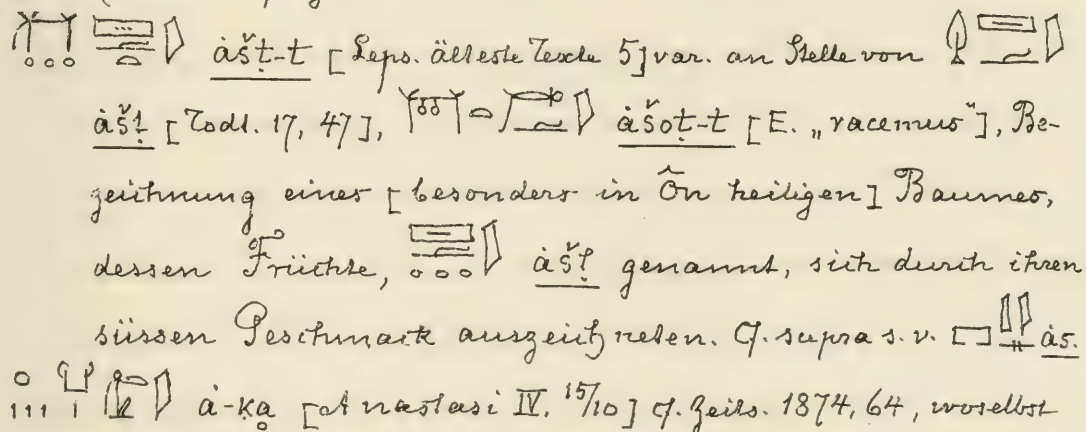 àšṭ-t [Leps. älteste Texte 5] var. an Stelle von
àšṭ [Todt. 17, 47], àšoṭ-t [E. „racemus"], Be-
zeichnung eines [besonders in Ôn heiligen] Baumes,
dessen Früchte, àšṭ genannt, sich durch ihren
süssen Geschmack auszeichneten. Cf. supra s. v. às.
à-ḳa [Anastasi IV. 15/10] cf. Zeits. 1874, 64, woselbst